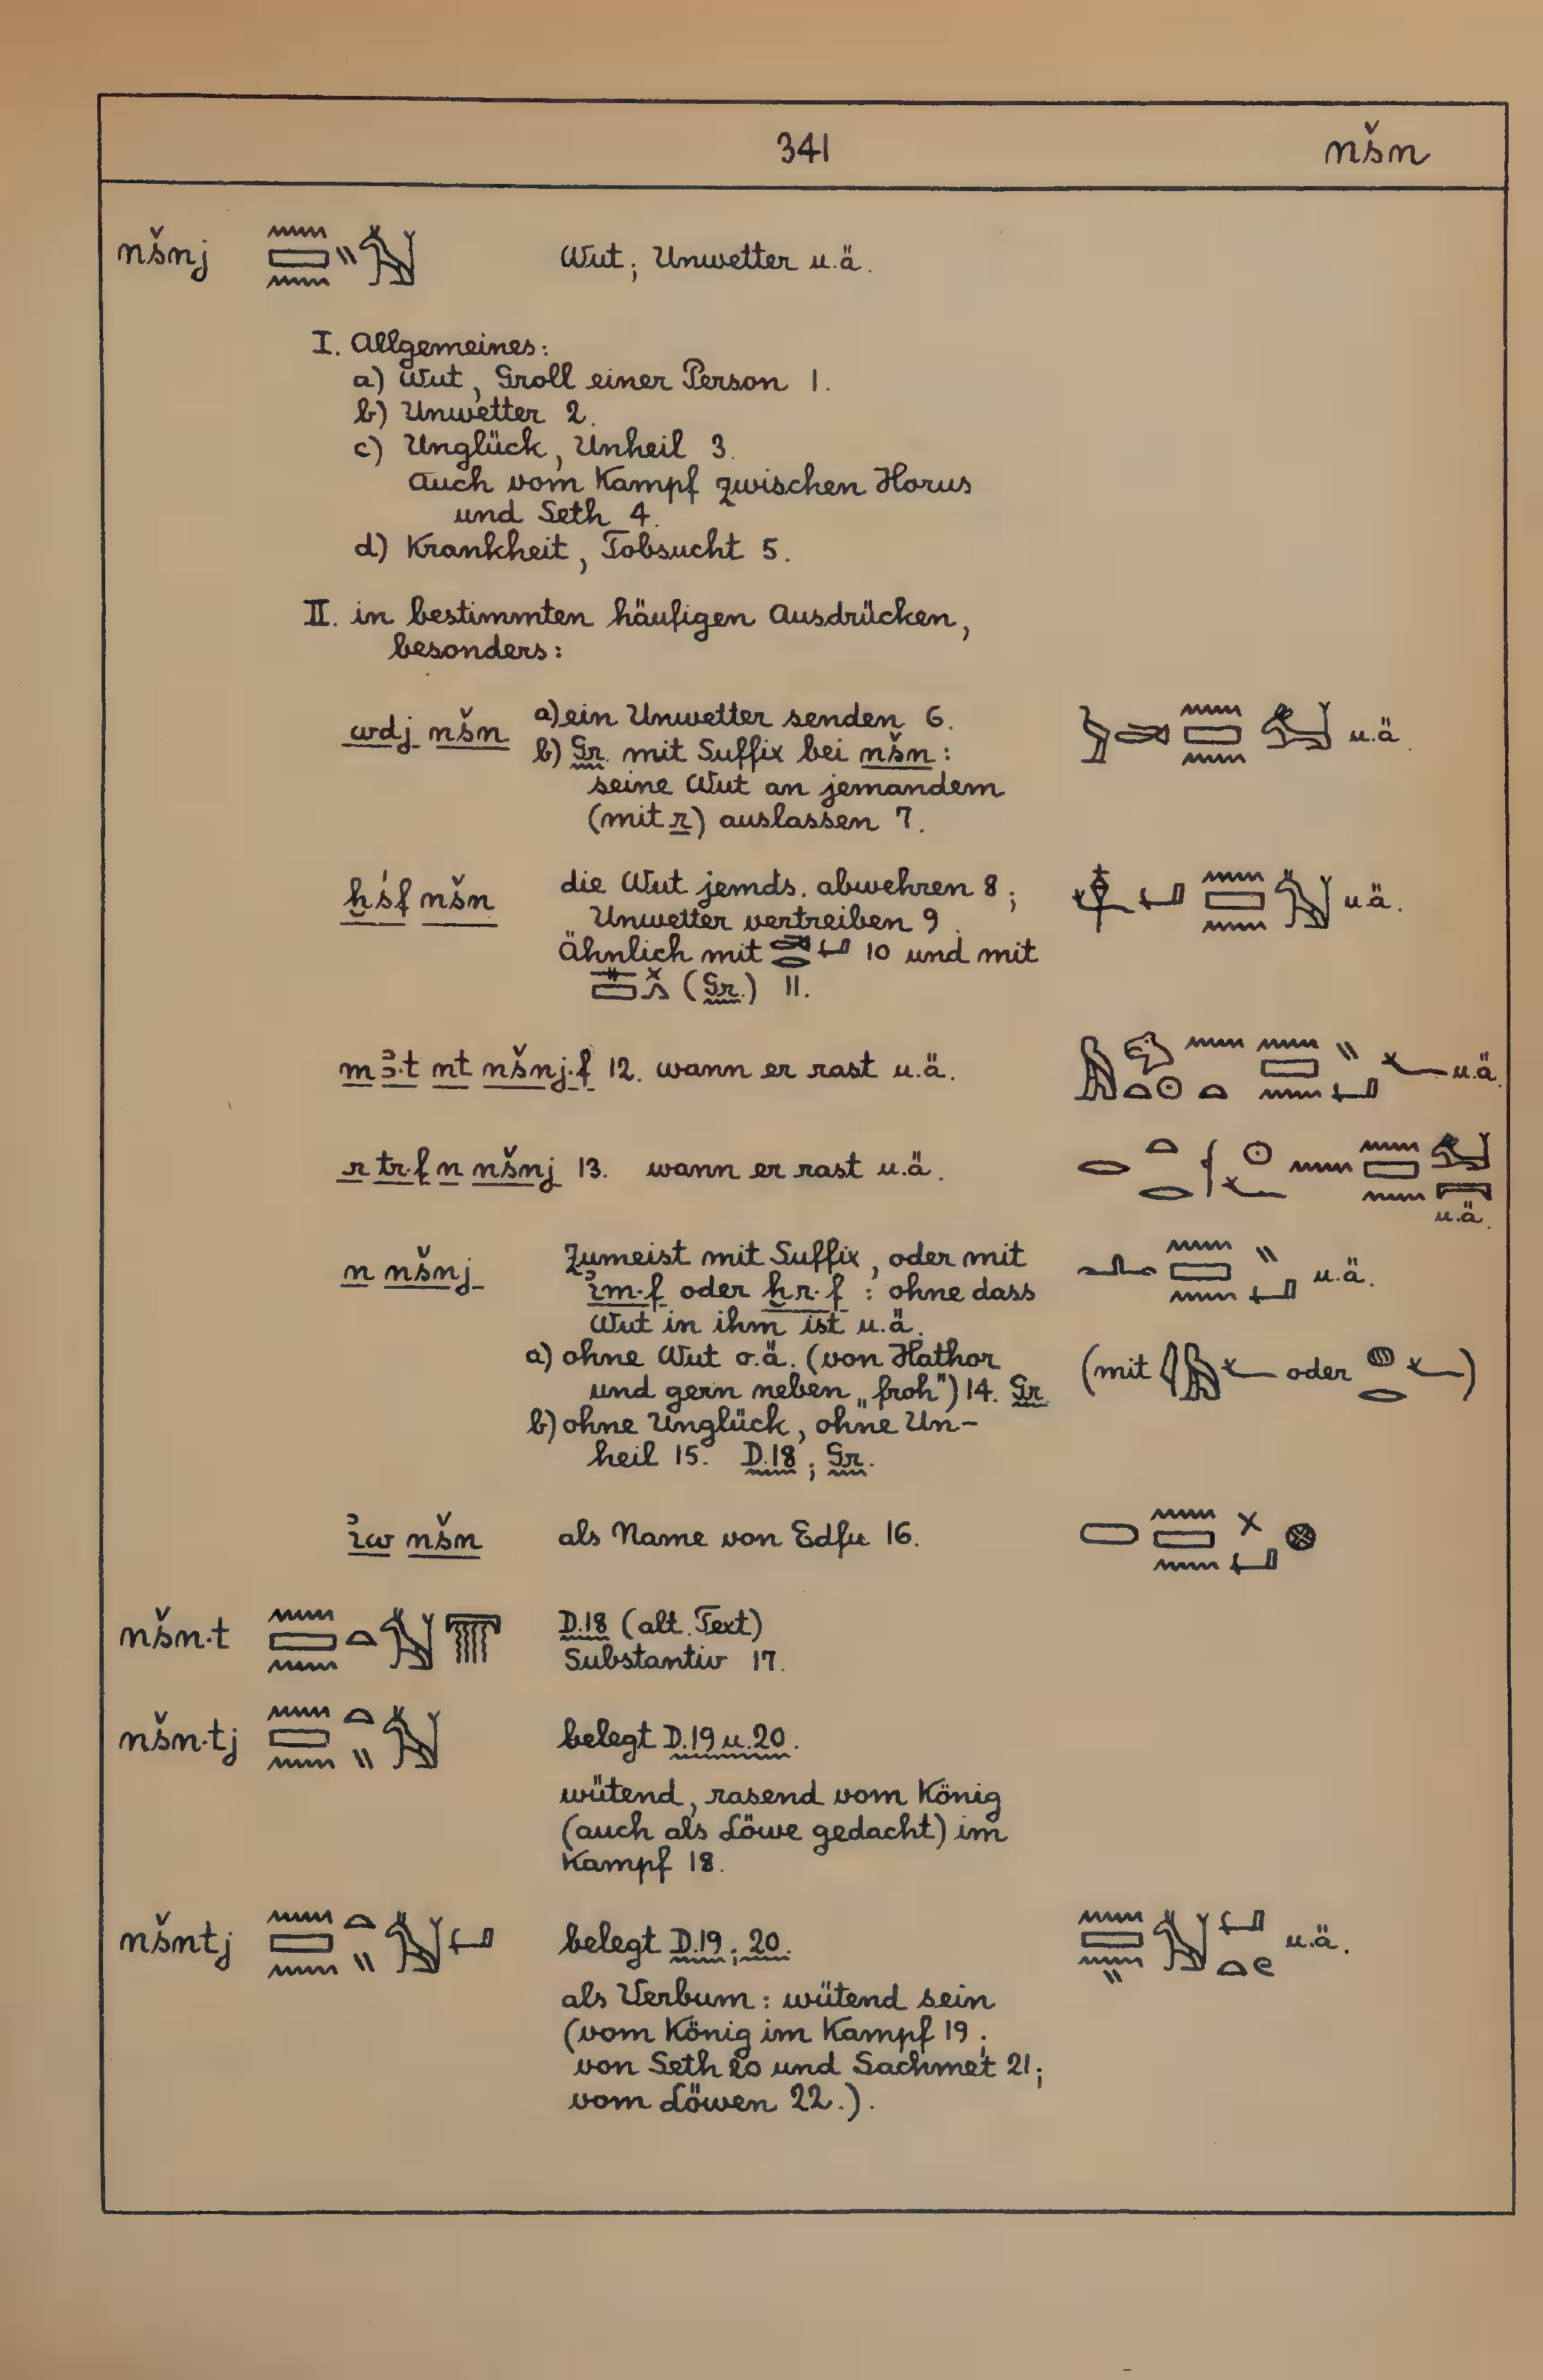 341 nšn
nšnj Wut; Unwetter u.ä.
I. Allgemeines:
a) Wut, Groll einer Person 1.
b) Unwetter 2.
c) Unglück, Unheil 3.
auch vom Kampf zwischen Horus
und Seth 4.
d) Krankheit, Tobsucht 5.
II. in bestimmten häufigen Ausdrücken,
besonders:
wdj nšn a) ein Unwetter senden 6. u.ä.
b) Gr. mit Suffix bei nšn:
seine Wut an jemandem
(mit r) auslassen 7.
ḫśf nšn die Wut jemds. abwehren 8; u.ä.
Unwetter vertreiben 9.
Ähnlich mit 10 und mit
(Gr.) 11.
m ꜣ.t nt nšnj.f 12. wann er rast u.ä. u.ä.
r tr.f n nšnj 13. wann er rast u.ä.
u.ä.
n nšnj Zumeist mit Suffix, oder mit u.ä.
ꞽm.f oder ẖr.f : ohne dass
Wut in ihm ist u.ä.
a) ohne Wut o.ä. (von Hathor (mit oder )
und gern neben „froh") 14. Gr.
b) ohne Unglück, ohne Un-
heil 15. D.18; Gr.
ꞽw nšn als Name von Edfu 16.
nšn.t D.18 (alt. Text)
Substantiv 17.
nšn.tj belegt D.19 u. 20.
wütend, rasend vom König
(auch als Löwe gedacht) im
Kampf 18.
nšntj belegt D.19; 20. u.ä.
als Verbum: wütend sein
(vom König im Kampf 19;
von Seth 20 und Sachmet 21;
vom Löwen 22.).